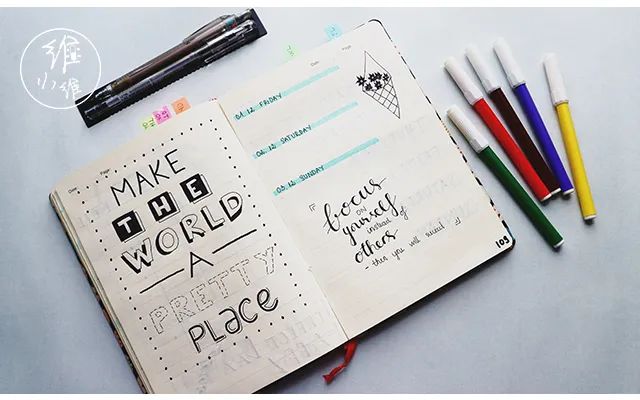 維
小維
Date:
Page:
MAKE
THE
WORLD
A
PRETTY
PLACE
Date:
Page:
01.12 FRIDAY
02.12 SATURDAY
03.12 SUNDAY
focus
ON
yourself
instead of
others
- then you will succeed
103